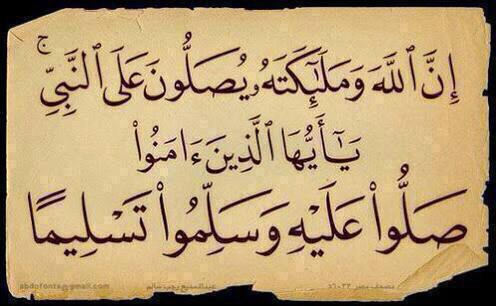 إِنَّ ٱللَّهَ وَمَلَٰٓئِكَتَهُۥ يُصَلُّونَ عَلَى ٱلنَّبِىِّۚ
يَٰٓأَيُّهَا ٱلَّذِينَ ءَامَنُوا۟
صَلُّوا۟ عَلَيْهِ وَسَلِّمُوا۟ تَسْلِيمًا
abdofonts@gmail.com عبدالسميع رجب سالم